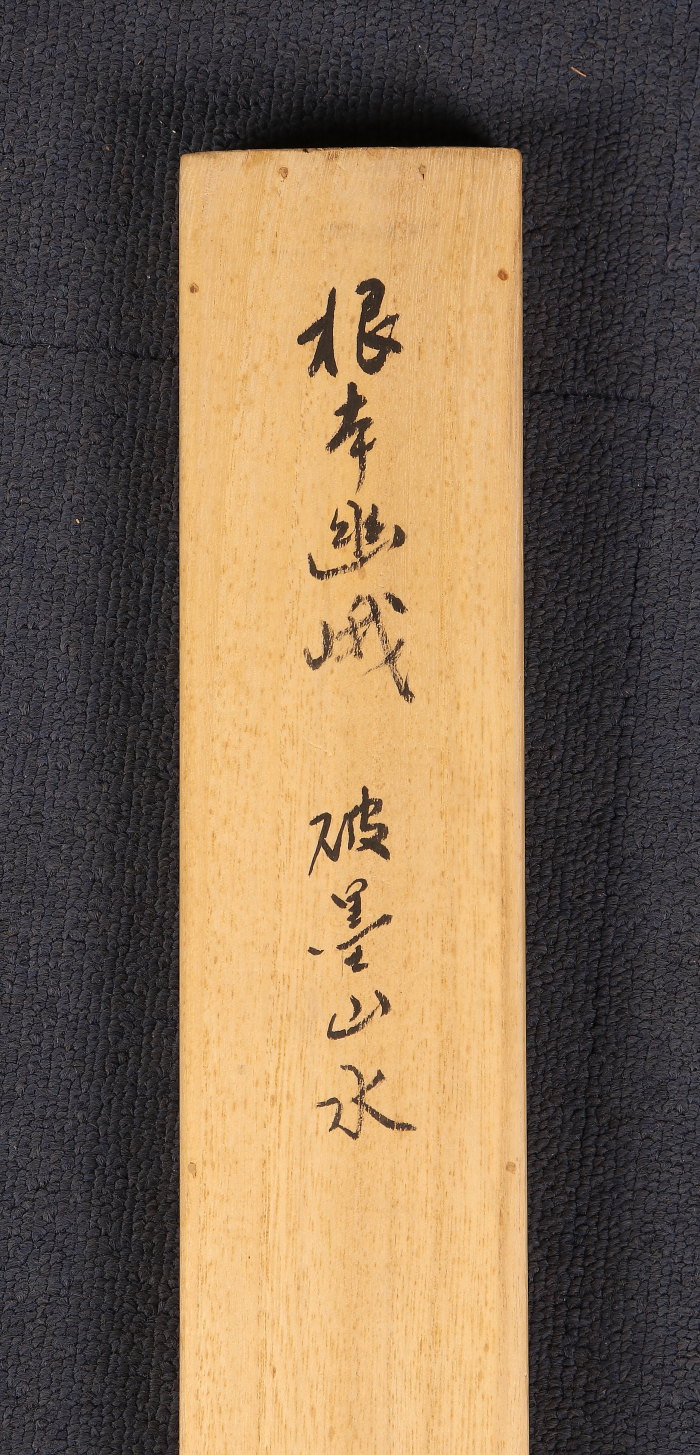 根本幽峨 破墨山水